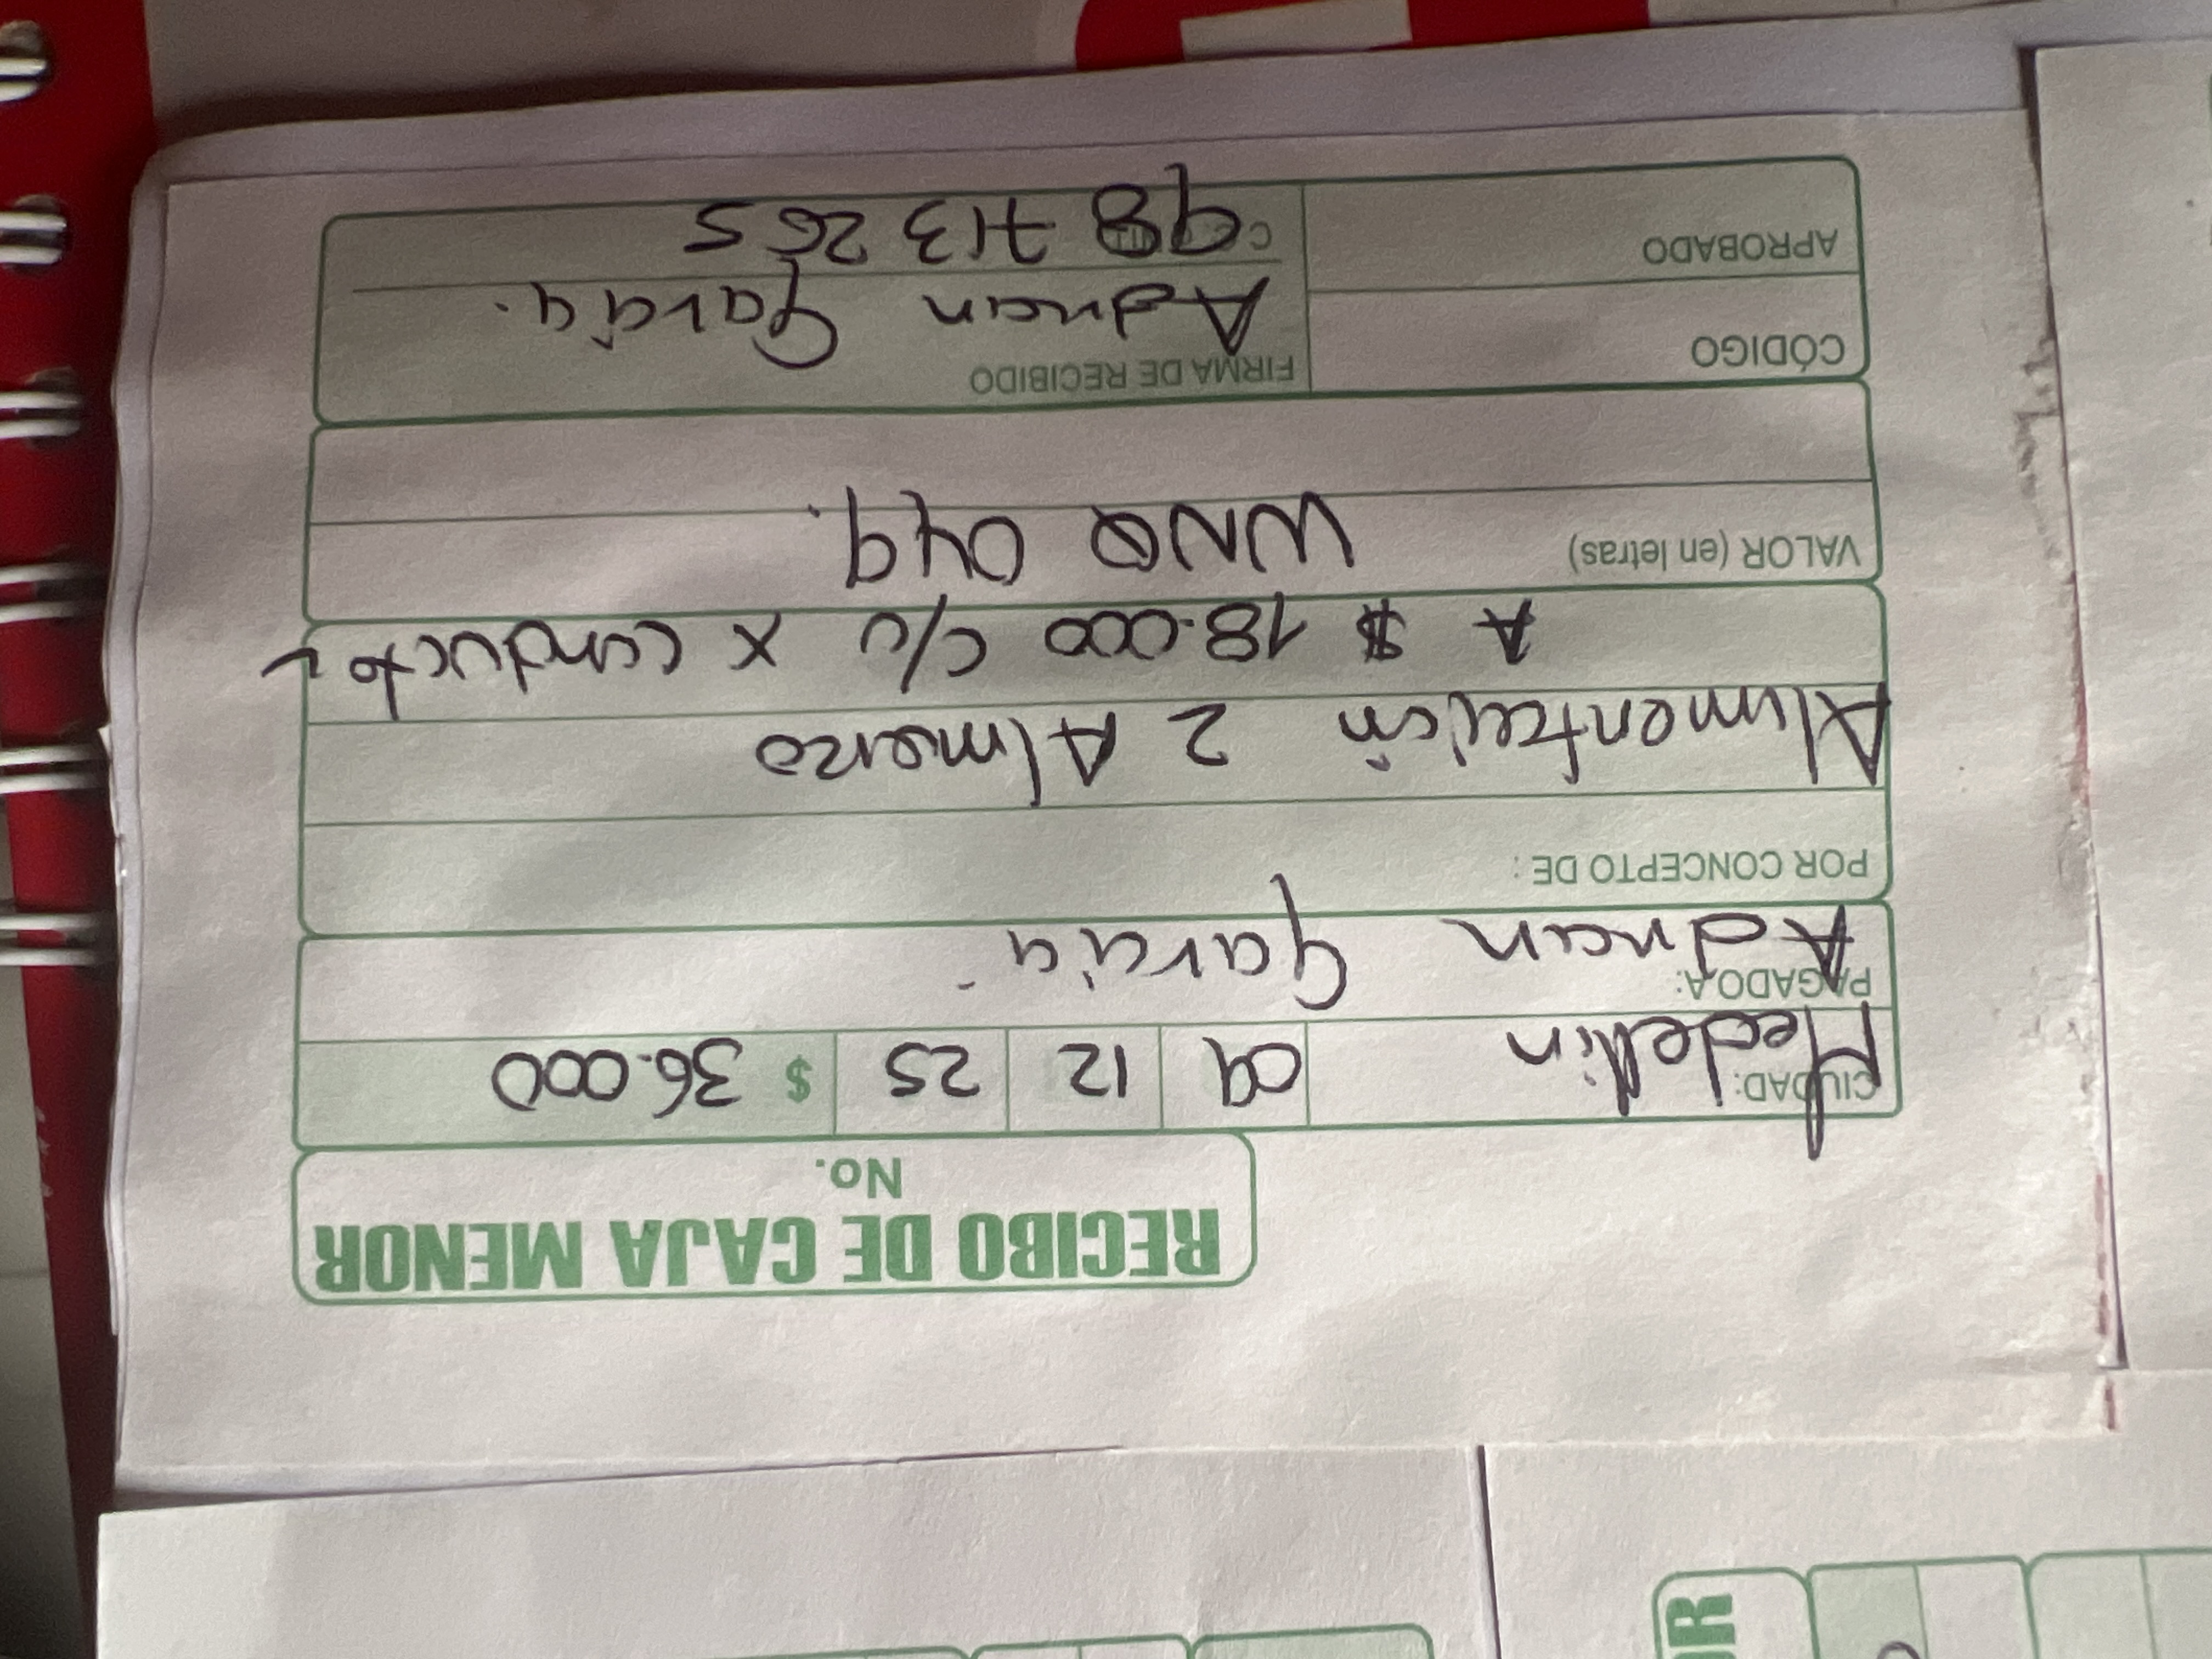 RECIBO DE CAJA MENOR
No.
CIUDAD: Medellin 09 12 25 $ 36.000
PAGADO A: Adrian Garcia
POR CONCEPTO DE :
Alimentación 2 Almerzo
A $ 18.000 c/u x conductor
VALOR (en letras) WNQ 049.
CÓDIGO
FIRMA DE RECIBIDO
Adrian Garcia.
APROBADO
98 713 265
OR